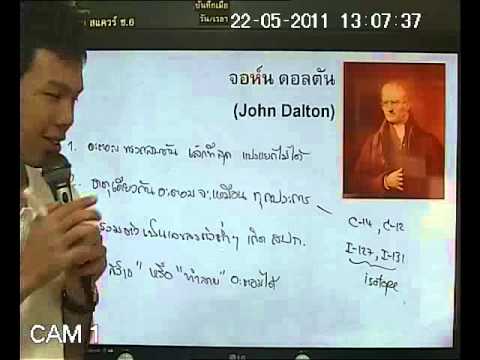 สแควร์ ช.6
บันทึกเมื่อ
วัน/เวลา
22-05-2011 13:07:37
จอห์น ดอลตัน
(John Dalton)
1. อะตอม ทรงกลมตัน เล็กที่สุด แบ่งแยกไม่ได้
ธาตุเดียวกัน อะตอม จะเหมือน ทุกประการ
C-14, C-12
รวมตัว เป็นเลขลงตัวต่ำๆ เกิด สปก.
I-127, I-131
isotope
"สร้าง" หรือ "ทำลาย" อะตอมไม่ได้
CAM 1